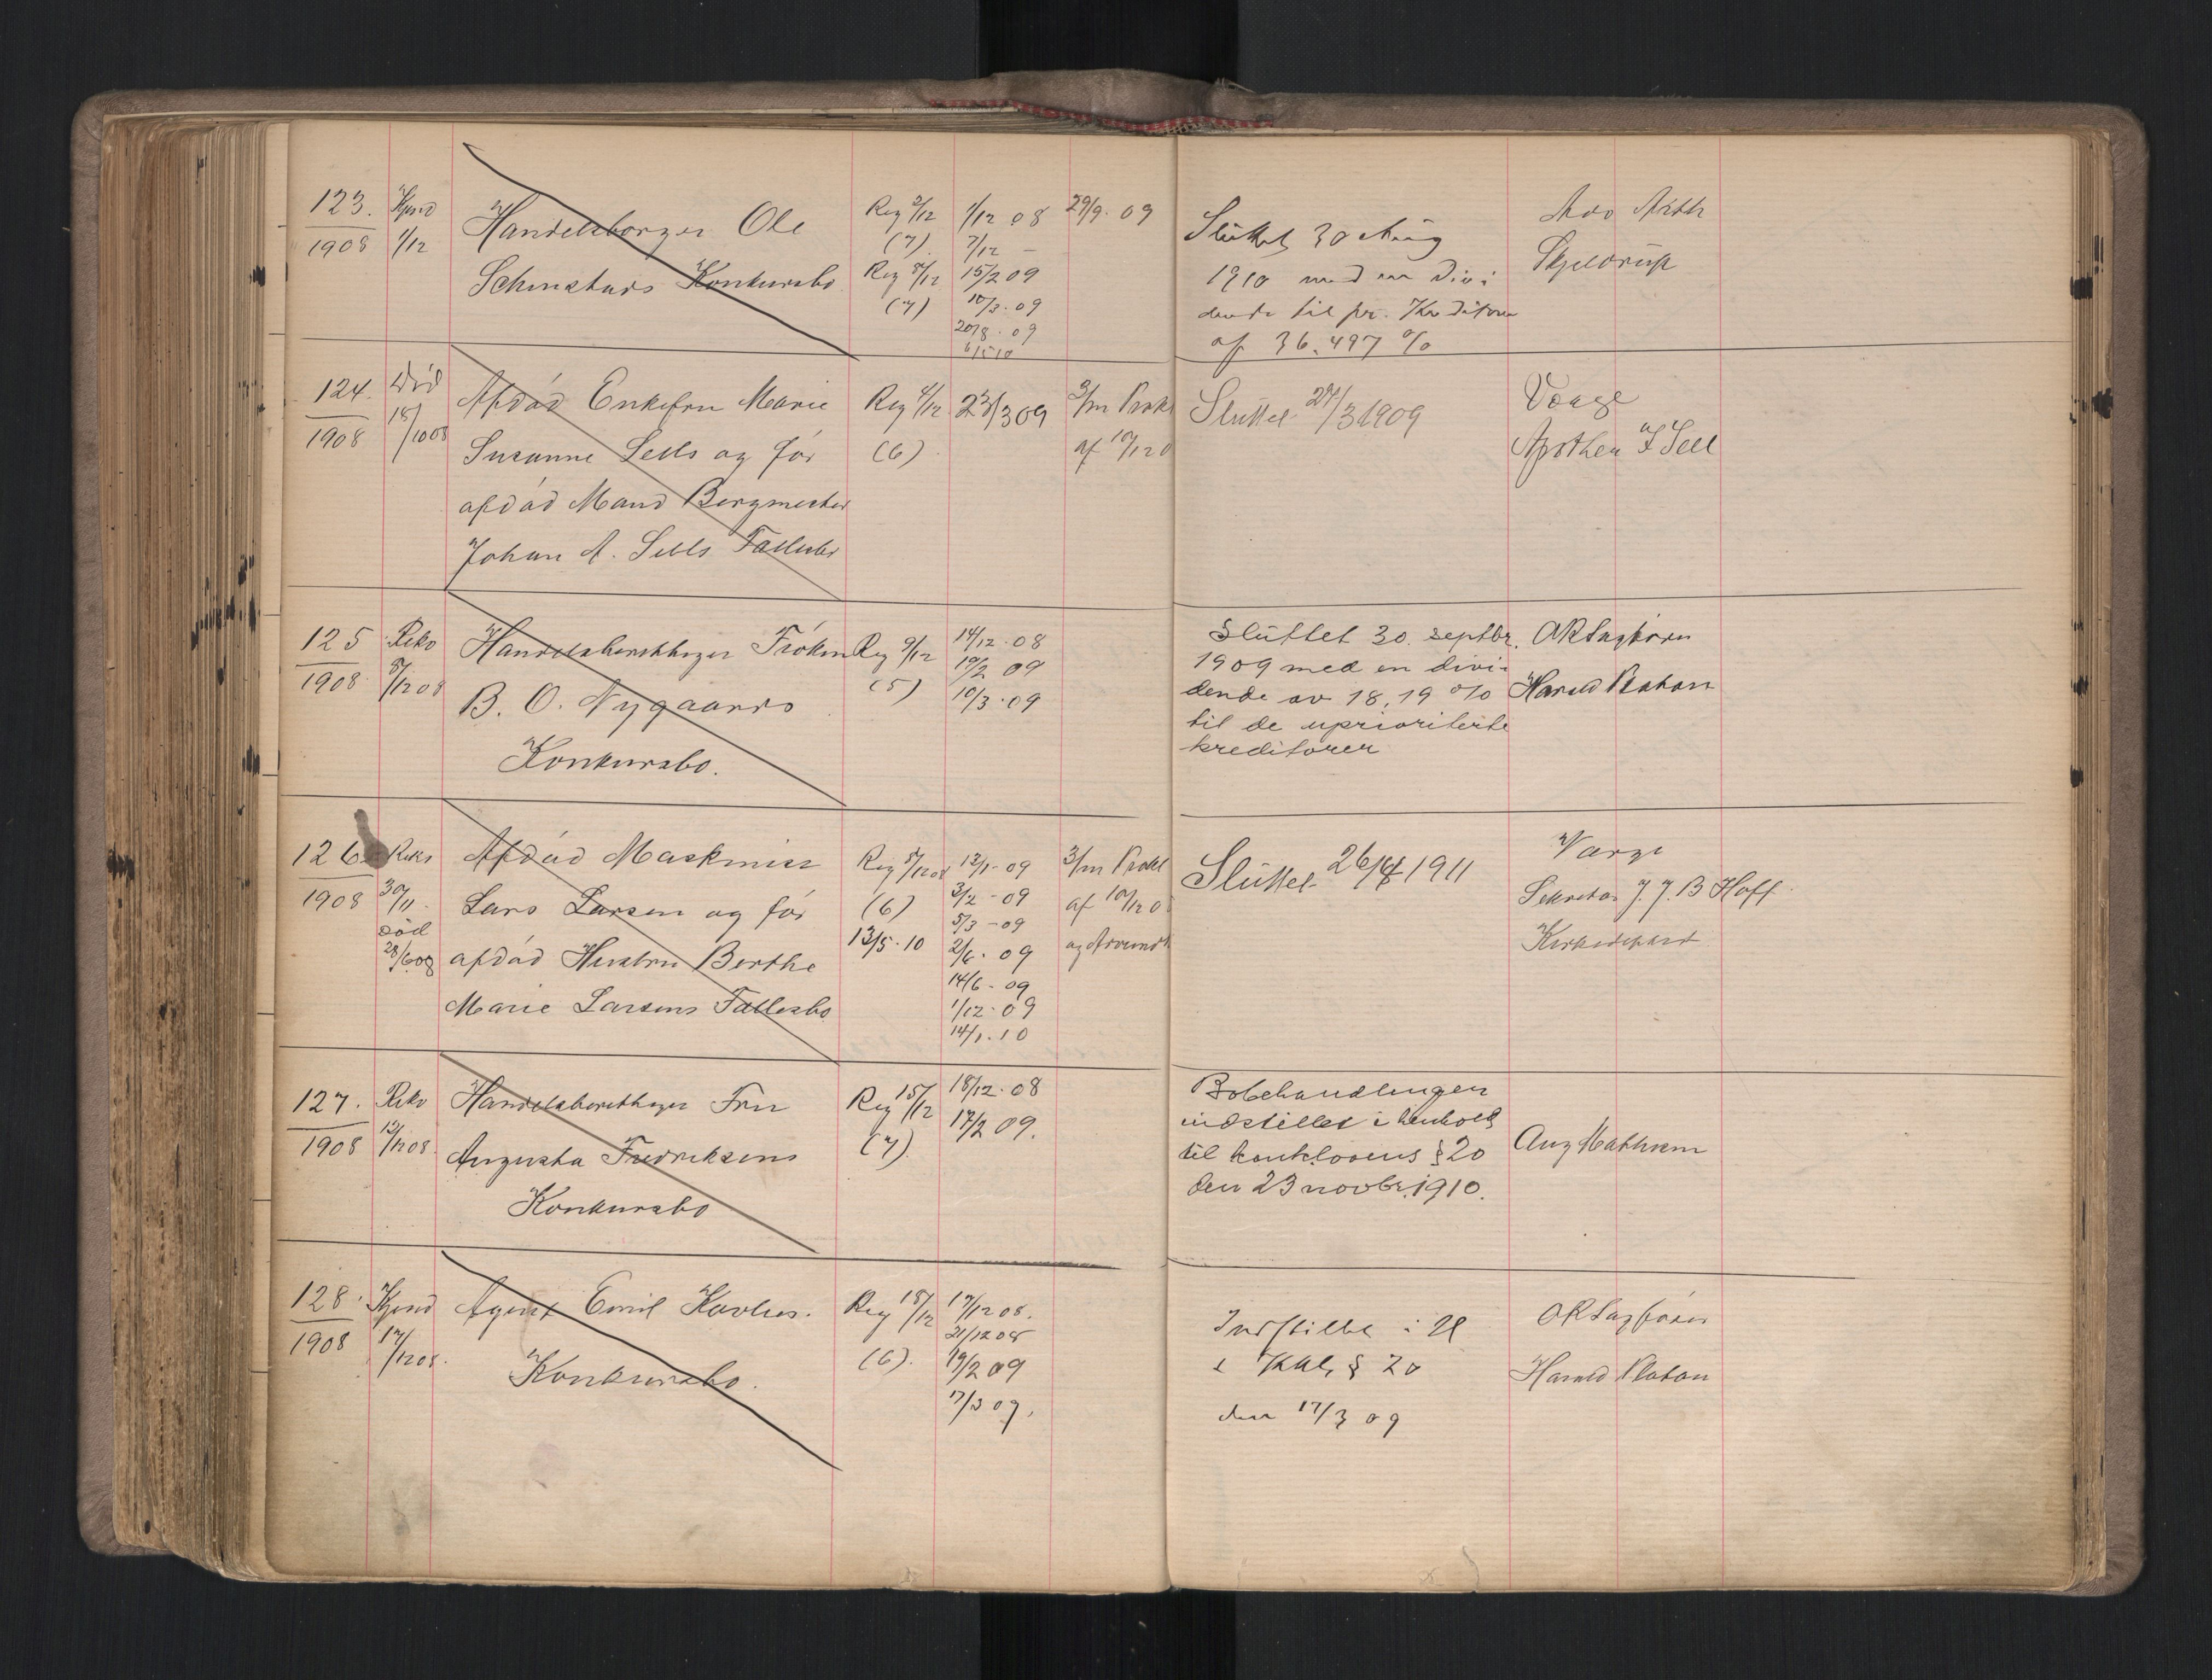 123. Kjend Handelsborger Ole Reg 2/12 1/12 08 29/9. 09
1908 1/12 Schmstads Konkursbo (7) 7/12 –
Reg 8/12 15/2 09
(7) 10/3. 09
20/8. 09
6/5 10
Sluttet 30 Aug
1910 med en divi
dende til pr. Kreditorer
af 36.497 %
Adv Arth
Skjeldrup
124. Død Afdød Enkefru Marie Reg 4/12 23/3 09 3/m Prokl
1908 18/10 08 Susanne Sells og før (6) af 10/12 0
afdød Mand Bergmester
Johan A. Sells Fællesbo
Sluttet 24/3 1909
Vaage
Apotheker Sell
125 Reko Handelsberettiget Frøken Reg 9/12 14/12. 08
1908 8/12 08 B. O. Nygaards (5) 19/2 09
Konkursbo. 10/3. 09
Sluttet 30. septbr.
1909 med en divi-
dende av 18,19 %
til de uprioriterte
kreditorer
ORSagfører
Harald Platou
126 Reks Afdød Maskinist Reg 8/12 08 13/1-09 3/m Prokl
1908 30/11 Lars Larsen og før (6) 3/2 - 09 af 10/12 0
død 13/5. 10 5/3 - 09
28/6 08 afdød Hustru Berthe 2/6. 09
Marie Larsens Fællesbo 14/6 - 09
1/12. 09
14/1. 10
Sluttet 26/4 1911
Varge
Sekretær J. J. B Hoff.
Kirkedepart
127. Reko Handelsberettiget Fru Reg 15/12 18/12. 08
1908 12/12 08. Augusta Fredriksens (7) 17/2 09.
Konkursbo
Bobehandlingen
indstillet i henhold
til konklovens § 20
den 23 novbr. 1910.
Aug Mathisen
128. Kjend Agent Emil Kavlies. Reg 18/12 17/12 08.
1908 17/12 08. Konkursbo. (6). 21/12 08
19/2 09
17/3 09.
Indstillet i H
t KKL § 20
den 17/3 09
ORSagfører
Harald Platou